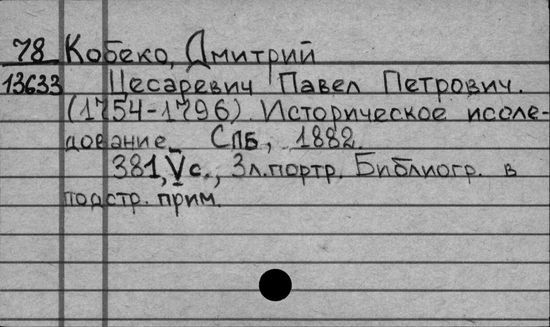 78 Кобеко, Дмитрий
13633 Цесаревич Павел Петрович.
(1754-1796) Историческое иссле-
дование_ СПБ, 1882.
381, V с., 3 л.портр. Библиогр. в
подстр. прим.